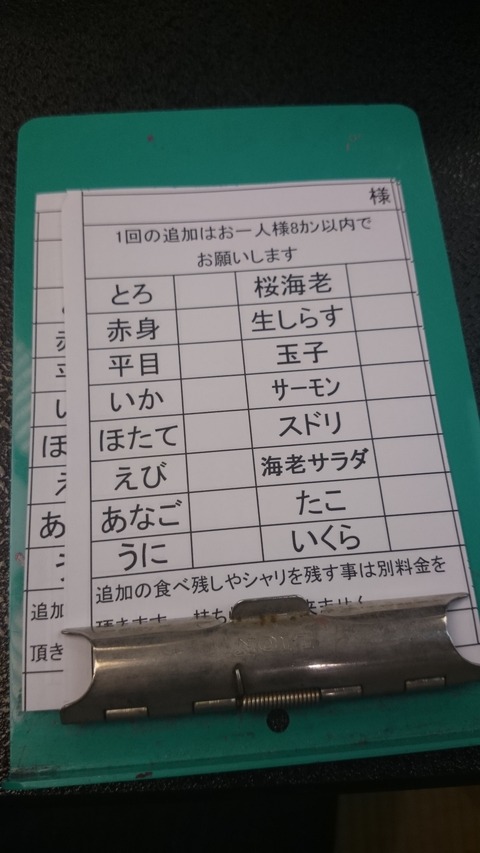 様
1回の追加はお一人様8カン以内で
お願いします
とろ 桜海老
赤身 生しらす
平目 玉子
いか サーモン
ほたて スドリ
えび 海老サラダ
あなご たこ
うに いくら
追加の食べ残しやシャリを残す事は別料金を
頂きます
追加
頂き